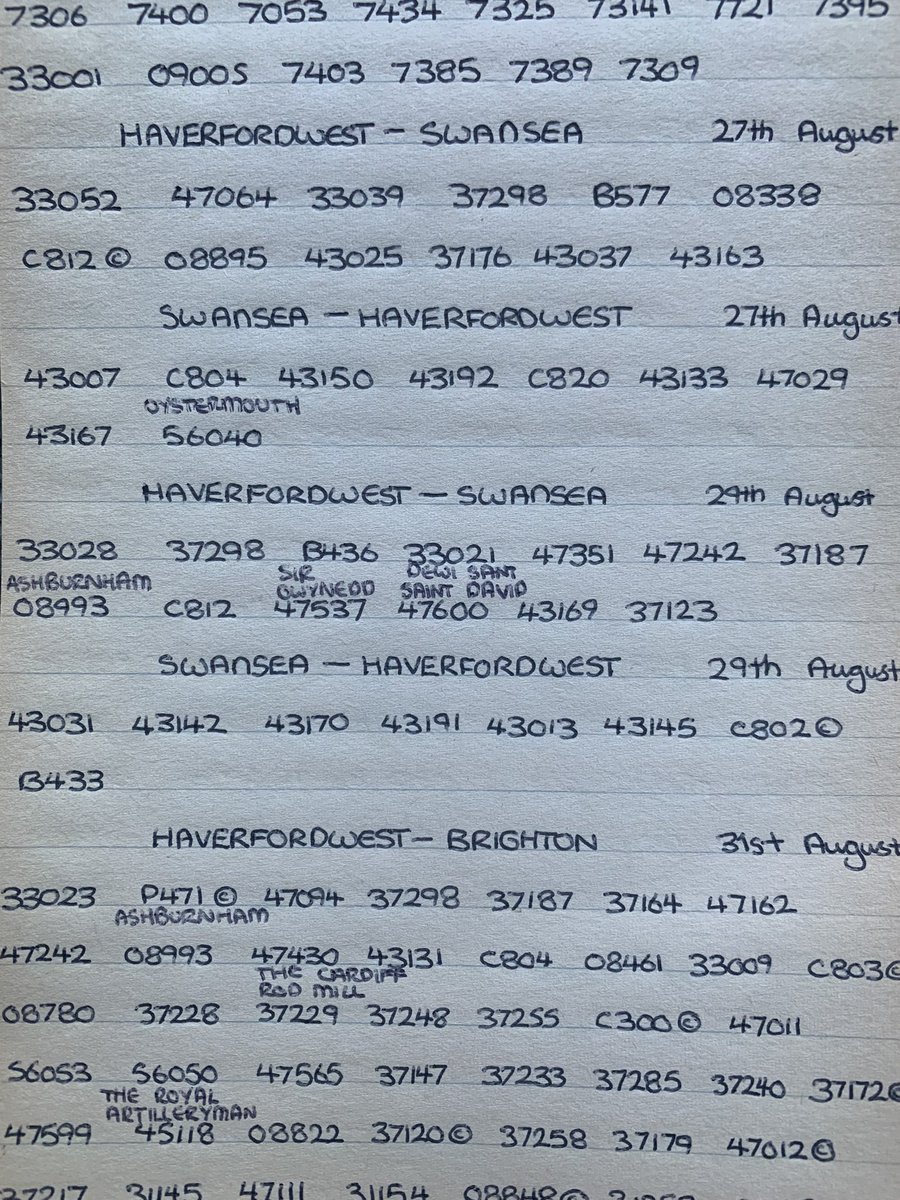 7306 7400 7053 7434 7325 73141 7721 7395
33001 09005 7403 7385 7389 7309
HAVERFORDWEST - SWANSEA 27th August
33052 47064 33039 37298 B577 08338
C812 © 08895 43025 37176 43037 43163
SWANSEA - HAVERFORDWEST 27th August
43007 C804 43150 43192 C820 43133 47029
OYSTERMOUTH
43167 56040
HAVERFORDWEST - SWANSEA 29th August
33028 37298 B436 33021 47351 47242 37187
ASHBURNHAM SIR DEWI SANT
GWYNEDD SAINT DAVID
08993 C812 47537 47600 43169 37123
SWANSEA - HAVERFORDWEST 29th August
43031 43142 43170 43191 43013 43145 C802 ©
B433
HAVERFORDWEST - BRIGHTON 31st August
33023 P471 © 47094 37298 37187 37164 47162
ASHBURNHAM
47242 08993 47430 43131 C804 08461 33009 C803 ©
THE CARDIFF
ROD MILL
08780 37228 37229 37248 37255 C300 © 47011
56053 56050 47565 37147 37233 37285 37240 37172 ©
THE ROYAL
ARTILLERYMAN
47599 45118 08822 37120 © 37258 37179 47012 ©
37217 31145 47111 31154 08848 ©